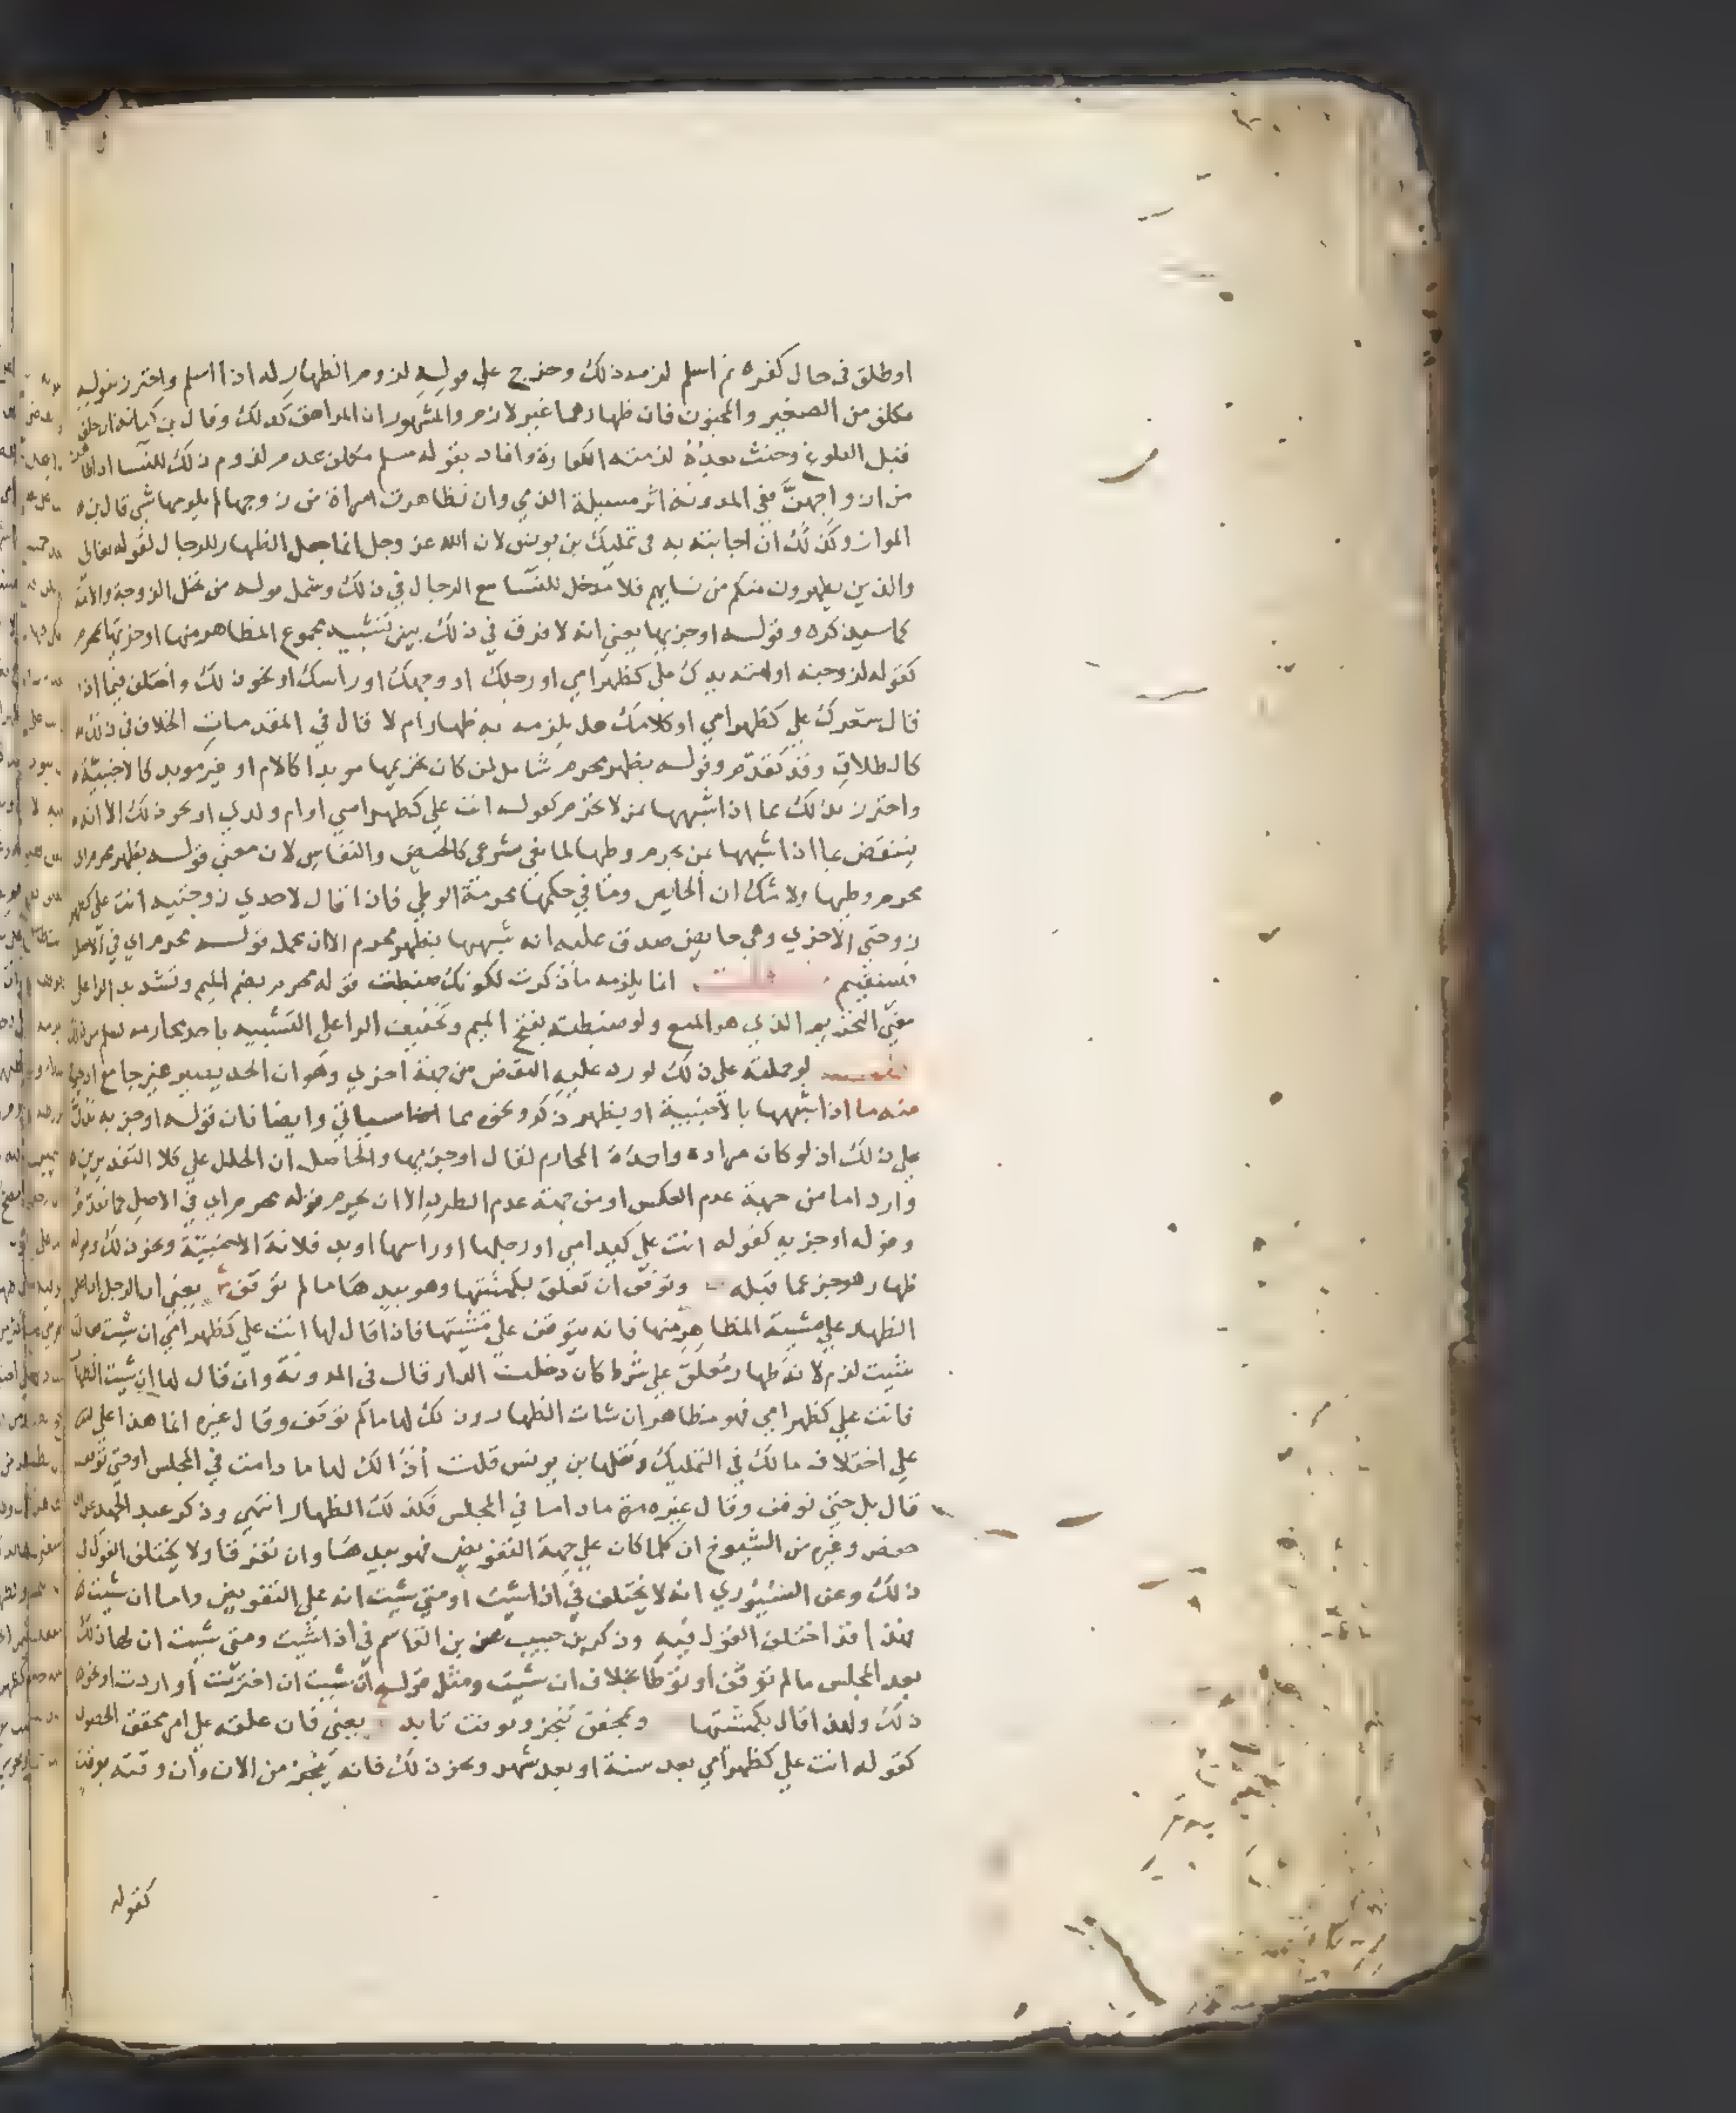 اوطلق في حال كفره ثم اسلم لزمه ذلك وخرج على موليه لزوم الظهار له اذا اسلم واحترز بقوله
مكلف من الصغير والمجنون فان ظهارهما غير لازم والمشهور ان المراهق كذلك وقال بن كنانة ان حلف
قبل البلوغ وحنث بعده لزمته الكفارة وافاد بقوله مسلم مكلف عدم لزوم ذلك للنسا
من ازواجهن ففي المدونة اثر مسيلة الذمي وان تظاهرت امراة من زوجها لم يلزمها شي قال بن
المواز وكذلك ان اجابته به في تمليك بن يونس لان الله عز وجل انما جعل الظهار للرجال لقوله تعالى
والذين يظهرون منكم من نسايهم فلا مدخل للنسا مع الرجال في ذلك وشمل قوله من تحل الزوجة والامة
كما سيذكره وقوله او جزيها يعني انه لا فرق في ذلك بين تشبيه مجموع المظاهر منها او جزيها بمحرم
كقوله لزوجته او امته يدك علي كظهر امي او رجلك او وجهك او راسك او نحو ذلك واختلف فيما اذا
قال شعرك علي كظهر امي او كلامك هل يلزمه به ظهار ام لا قال في المقدمات الخلاف في ذلك
كالطلاق وقد تقدم وقوله بظهر محرم شامل لمن كان تحريمها موبدا كالام او غير موبد كالاجنبية
واحترز بذلك عما اذا شبهها بمن لا تحرم كقوله انت علي كظهر امتي او ام ولدي او نحو ذلك الا انه
ينتقض بما اذا شبهها بمن يحرم وطيها لمانع شرعي كالحيض والنفاس لان معنى قوله بظهر محرم اي
محرم وطيها ولا شك ان الحايض ومن في حكمها محرمة الوطي فاذا قال لاحدي زوجتيه انت علي كظهر
زوجتي الاخري وهي حايض صدق عليه انه شبهها بظهر محرم الا ان يحمل قوله محرم اي في الاصل
فيستقيم انما يلزمه ما ذكرت لكونك ضبطت قوله محرم بضم الميم وتشديد الرا علي
معني التحريم الذي هو المنع ولو ضبطته بفتح الميم وتخفيف الرا علي التشبيه باحد محارمه لسلم من ذلك
لو حملته علي ذلك لورد عليه النقض من جهة اخري وهو ان الحد يصير غير جامع اذ يخرج
منه ما اذا شبهها بالاجنبية او بظهر ذكر ونحوه مما سياتي وايضا فان قوله او جزيه يدلك
علي ذلك اذ لو كان مراده واحدة المحارم لقال او جزيها والحاصل ان الخلل علي كلا التقديرين
وارد اما من جهة عدم العكس او من جهة عدم الطرد الا ان يحمل قوله محرم اي في الاصل كما تقدم
وقوله او جزيه كقوله انت علي كيد امي او رجلها او راسها او يد فلانة الاجنبية ونحو ذلك وقوله
ظهار هو خبر عما قبله وتوقف ان تعلق بكمشيتها وهو بيدها ما لم توقف ش يعني ان الرجل اذا علق
الظهار علي مشية المظاهر منها فانه يتوقف علي مشيتها فاذا قال لها انت علي كظهر امي ان شيت فقالت
شيت لزم لانه ظهار معلق علي شرط كان دخلت الدار قال في المدونة وان قال لها ان شيت الظهار
فانت علي كظهر امي فهو مظاهر ان شات الظهار وذلك لها ما لم توقف وقال غيره انما هذا علي
علي اختلاف مالك في التمليك ونقلها بن يونس قلت اذالك لها ما دامت في المجلس او حتى توقف
قال بل حتى توقف وقال غيره ما داما في المجلس فكذلك الظهار انتهي وذكر عبد الحميد عن ابي
حفص وغيره من الشيوخ ان كلما كان علي جهة التفويض فهو بيدها وان تفرقا ولا يختلف القول في
ذلك وعن السيوري انه لا يختلف في اذا شيت او متى شيت انه علي التفويض واما ان شيت
فهذا قد اختلف القول فيه وذكر بن حبيب عن بن القاسم في اذا شيت ومتى شيت ان لها ذلك
بعد المجلس ما لم توقف او توطا بخلاف ان شيت ومثل قوله ان شيت ان اخترت او اردت او نحو
ذلك ولهذا قال بكمشيتها وبمحقق تنجز وبوقت تابد يعني فان علقه علي امر محقق الحصول
كقوله انت علي كظهر امي بعد سنة او بعد شهر ونحو ذلك فانه يتنجز من الان وان وقته بوقت
كقوله